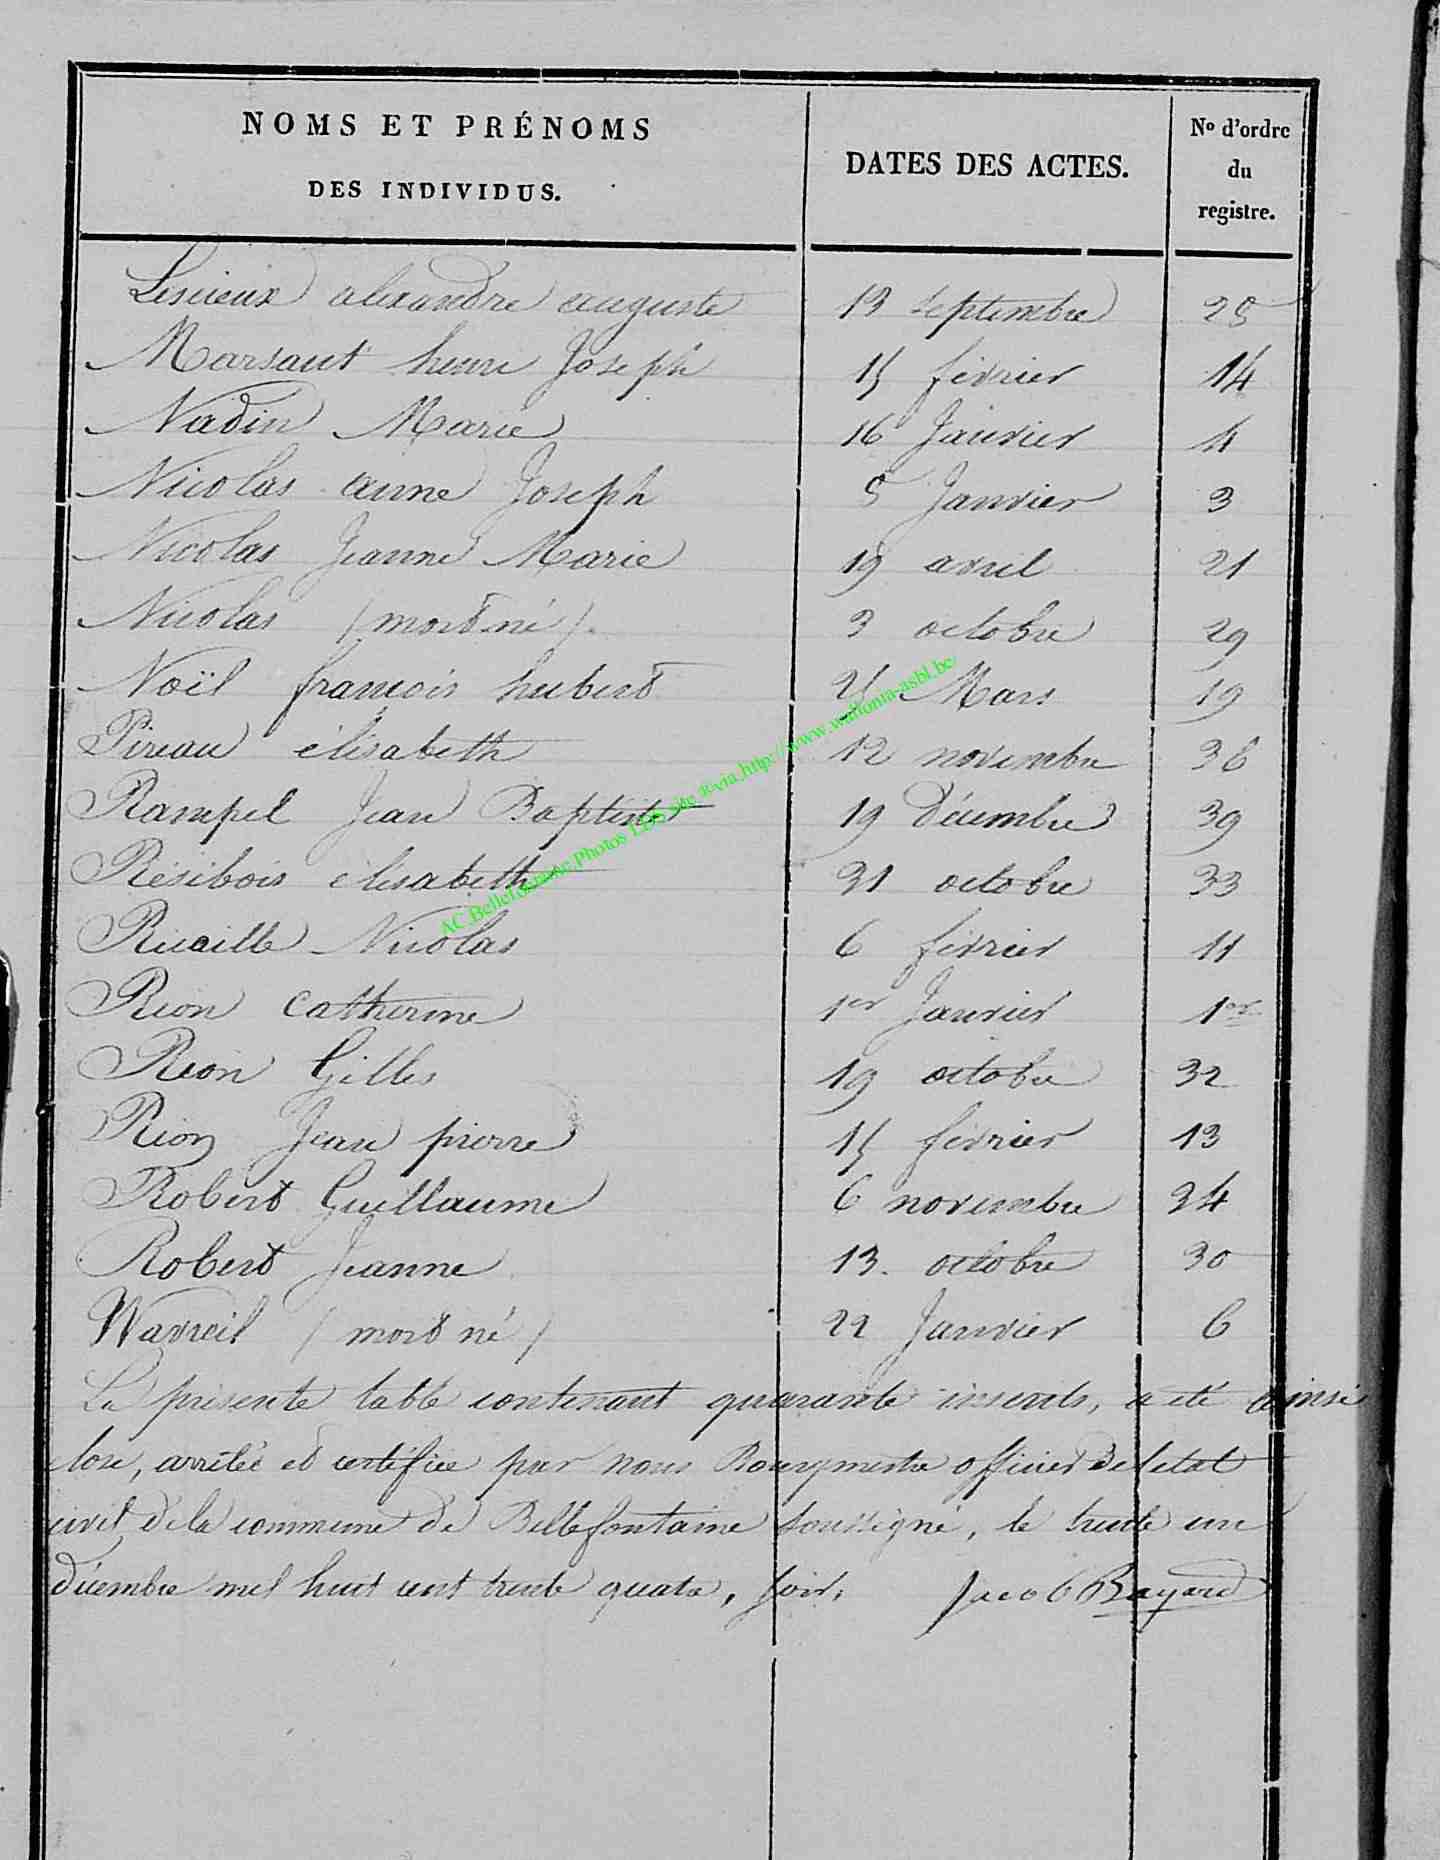 NOMS ET PRÉNOMS
DES INDIVIDUS.
DATES DES ACTES.
No d'ordre
du
registre.
Lesuieux alexandre auguste 13 septembre 25
Marsaut henri Joseph 15 février 14
Nadin Marie 16 Janvier 4
Nicolas anne Joseph 5 Janvier 3
Nicolas Jeanne Marie 19 avril 21
Nicolas (mort né) 3 octobre 29
Noël françois hubert 25 Mars 19
Pireau élisabeth 12 novembre 36
Rampel Jean Baptiste 19 Décembre 39
Résibois élisabeth 31 octobre 33
Ricaille Nicolas 6 février 11
Rion Catherine 1er Janvier 1er
Rion Gilles 19 octobre 32
Rion Jean pierre 15 février 13
Robert Guillaume 6 novembre 34
Robert Jeanne 13. octobre 30
Wavreil (mort né) 22 Janvier 6
La présente table contenant quarante inscrits, a été ainsi
close, arrêtée et certifiée par nous Bourgmestre officier de letat
civil de la commune de Bellefontaine soussigné, le trente un
décembre mil huit cent trente quatre, soir. Jacob Bayard
AC Bellefontaine Photos LDS via http://www.wallonia-asbl.be/